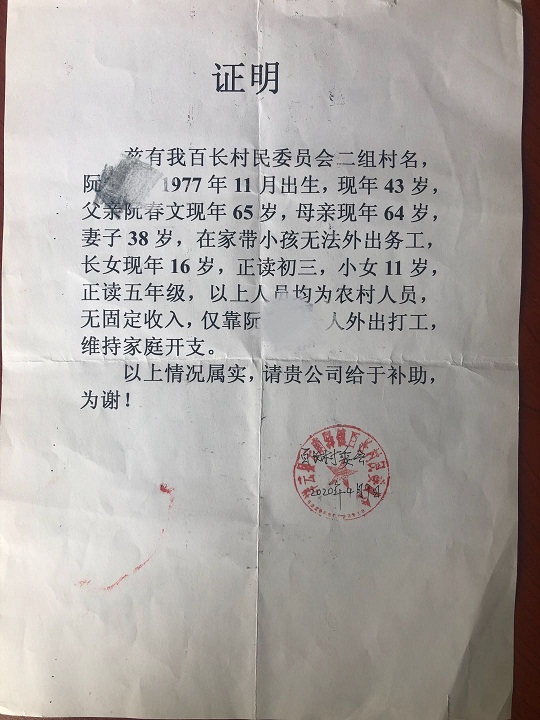 证明
兹有我百长村民委员会二组村名，
阮 1977年11月出生，现年43岁，
父亲阮春文现年65岁，母亲现年64岁，
妻子38岁，在家带小孩无法外出务工，
长女现年16岁，正读初三，小女11岁，
正读五年级，以上人员均为农村人员，
无固定收入，仅靠阮 人外出打工，
维持家庭开支。
以上情况属实，请贵公司给于补助，
为谢！
百长村委会
2020年4月9日